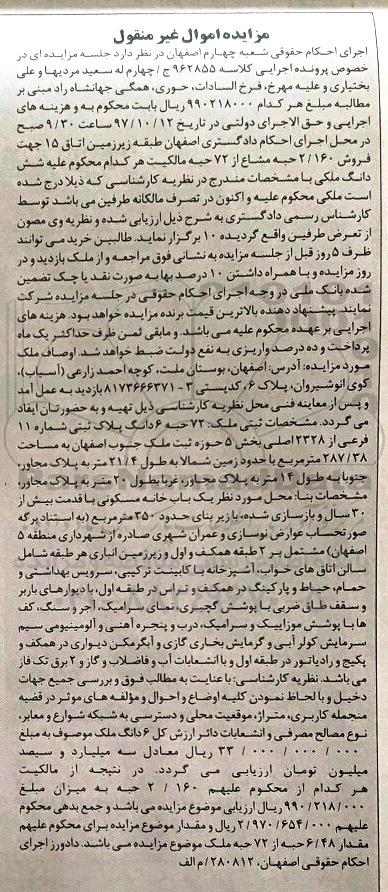 مزایده اموال غیر منقول
اجرای احکام حقوقی شعبه چهارم اصفهان در نظر دارد جلسه مزایده ای در
خصوص پرونده اجرایی کلاسه ۹۶۲۸۵۵ ج/چهارم له سعید مردیها و علی
بختیاری و علیه مهرخ، فرخ السادات، حوری، همگی جهانشاه راد مبنی بر
مطالبه مبلغ هر کدام ۹۹۰۲۱۸۰۰۰ ریال بابت محکوم به و هزینه های
اجرایی و حق الاجرای دولتی در تاریخ ۹۷/۱۰/۱۲ ساعت ۹/۳۰ صبح
در محل اجرای احکام دادگستری اصفهان طبقه زیرزمین اتاق ۱۵ جهت
فروش ۲/۱۶۰ حبه مشاع از ۷۲ حبه مالکیت هر کدام محکوم علیه شش
دانگ ملکی با مشخصات مندرج در نظریه کارشناسی که ذیلا درج شده
است ملکی محکوم علیه و اکنون در تصرف مالکانه طرفین می باشد توسط
کارشناس رسمی دادگستری به شرح ذیل ارزیابی شده و نظریه وی مصون
از تعرض طرفین واقع گردیده ۱۰ برگزار نماید. طالبین خرید می توانند
ظرف ۵ روز قبل از جلسه مزایده به نشانی فوق مراجعه و از ملک بازدید و در
روز مزایده و با همراه داشتن ۱۰ درصد بها به صورت نقد یا چک تضمین
شده بانک ملی در وجه اجرای احکام حقوقی در جلسه مزایده شرکت
نمایند. پیشنهاد دهنده بالاترین قیمت برنده مزایده خواهد بود. هزینه های
اجرایی بر عهده محکوم علیه می باشد. و مابقی ثمن ظرف حداکثر یک ماه
پرداخت و ده درصد واریزی به نفع دولت ضبط خواهد شد. اوصاف ملک
مورد مزایده: آدرس: اصفهان، بوستان ملت، کوچه احمد زارعی (آسیاب)،
کوی انوشیروان، پلاک ۶، کدپستی ۳ - ۸۱۷۳۶۶۶۳۷۱ بازدید به عمل آمد
و پس از معاینه فنی محل نظریه کارشناسی ذیل تهیه و به حضورتان ایفاد
می گردد. مشخصات ثبتی ملک: ۷۲ حبه ۶ دانگ پلاک ثبتی شماره ۱۱
فرعی از ۲۳۲۸ اصلی بخش ۵ حوزه ثبت ملک جنوب اصفهان به مساحت
۲۸۷/۳۸ مترمربع با حدود زمین شمالا به طول ۲۱/۴ متر به پلاک مجاور،
جنوبا به طول ۱۴ متر به پلاک مجاور، غربا بطول ۲۰ متر به پلاک مجاور،
مشخصات بنا: محل مورد نظر یک باب خانه مسکونی با قدمت بیش از
۳۰ سال و بازسازی شده، با زیر بنای حدود ۳۵۰ مترمربع (به استناد برگه
صورتحساب عوارض نوسازی و عمران شهری صادره از شهرداری منطقه ۵
اصفهان) مشتمل بر ۲ طبقه همکف و اول و زیرزمین انباری هر طبقه شامل
سالن اتاق های خواب، آشپزخانه با کابینت ترکیبی، سرویس بهداشتی و
حمام، حیاط و پارکینگ در همکف و تراس در طبقه اول، با دیوارهای باربر
و سقف طاق ضربی با پوشش گچبری، نمای سرامیک، آجر و سنگ، کف
ها با پوشش موزاییک و سرامیک، درب و پنجره آهنی و آلومینیومی سیم
سرمایش کولر آبی و گرمایش بخاری گازی و آبگرمکن دیواری در همکف و
پکیج و رادیاتور در طبقه اول و با انشعابات آب و فاضلاب و گاز و ۲ برق تک فاز
می باشد. نظریه کارشناسی: با عنایت به مطالب فوق و بررسی جمیع جهات
دخیل و با لحاظ نمودن کلیه اوضاع و احوال و مؤلفه های موثر در قضیه
منجمله کاربری، متراژ، موقعیت محلی و دسترسی به شبکه شوارع و معابر،
نوع مصالح مصرفی و انشعابات دائر ارزش کل ۶ دانگ ملک موصوف به مبلغ
۳۳ / ۰۰۰ / ۰۰۰ / ۰۰۰ ریال معادل سه میلیارد و سیصد
میلیون تومان ارزیابی می گردد. در نتیجه از مالکیت
هر کدام از محکوم علیهم ۲ / ۱۶۰ حبه به میزان مبلغ
۹۹۰/۲۱۸/۰۰۰ ریال ارزیابی موضوع مزایده می باشد و جمع بدهی محکوم
علیهم ۲/۹۷۰/۶۵۴/۰۰۰ ریال و مقدار موضوع مزایده برای محکوم علیهم
مقدار ۶/۴۸ حبه از ۷۲ حبه ملک موضوع مزایده می باشد. دادورز اجرای
احکام حقوقی اصفهان، ۲۸۰۸۱۲/م الف